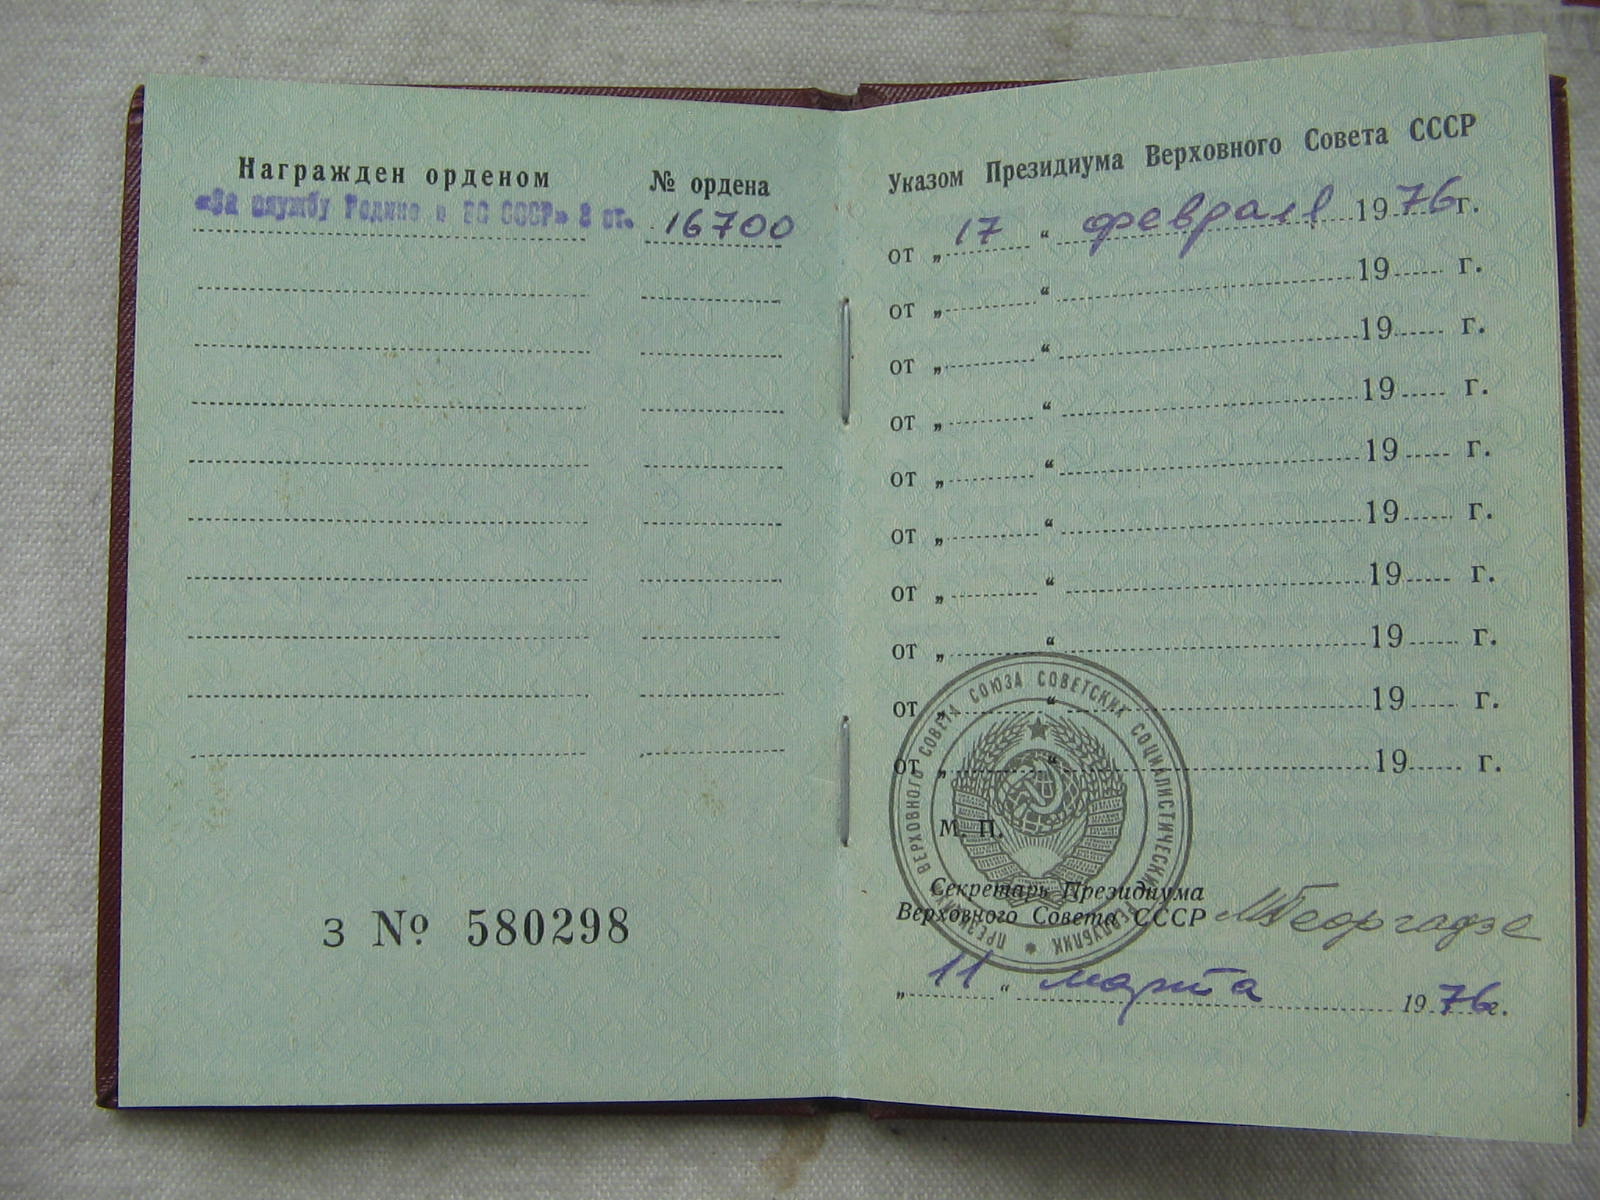 Награжден орденом № ордена
«За службу Родине в ВС СССР» 2 ст. 16700
З № 580298
Указом Президиума Верховного Совета СССР
от „ 17 “ февраля 1976 г.
от „ “ 19 г.
от „ “ 19 г.
от „ “ 19 г.
от „ “ 19 г.
от „ “ 19 г.
от „ “ 19 г.
от „ “ 19 г.
от „ “ 19 г.
от „ “ 19 г.
М. П.
ПРЕЗИДИУМ ВЕРХОВНОГО СОВЕТА СОЮЗА СОВЕТСКИХ СОЦИАЛИСТИЧЕСКИХ РЕСПУБЛИК
Секретарь Президиума
Верховного Совета СССР МГеоргадзе
„ 11 “ марта 1976 г.